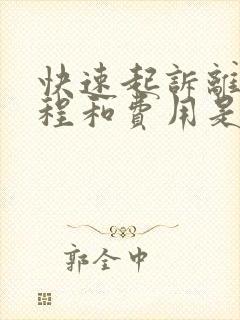 快速起訴離
程和費用是
郭全中